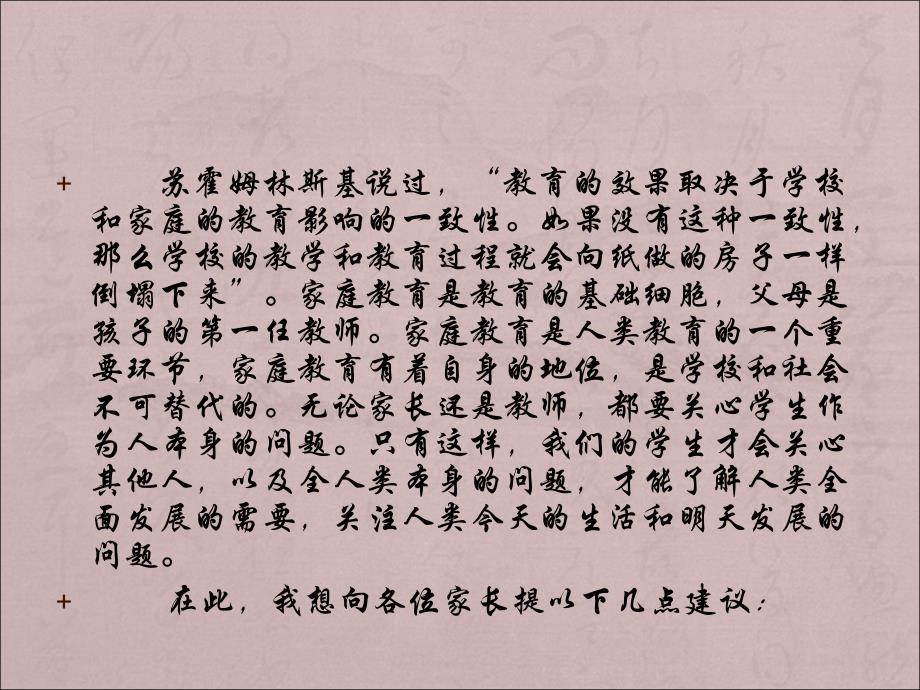 苏霍姆林斯基说过，“教育的效果取决于学校
和家庭的教育影响的一致性。如果没有这种一致性，
那么学校的教学和教育过程就会向纸做的房子一样
倒塌下来”。家庭教育是教育的基础细胞，父母是
孩子的第一任教师。家庭教育是人类教育的一个重
要环节，家庭教育有着自身的地位，是学校和社会
不可替代的。无论家长还是教师，都要关心学生作
为人本身的问题。只有这样，我们的学生才会关心
其他人，以及全人类本身的问题，才能了解人类全
面发展的需要，关注人类今天的生活和明天发展的
问题。
在此，我想向各位家长提以下几点建议：